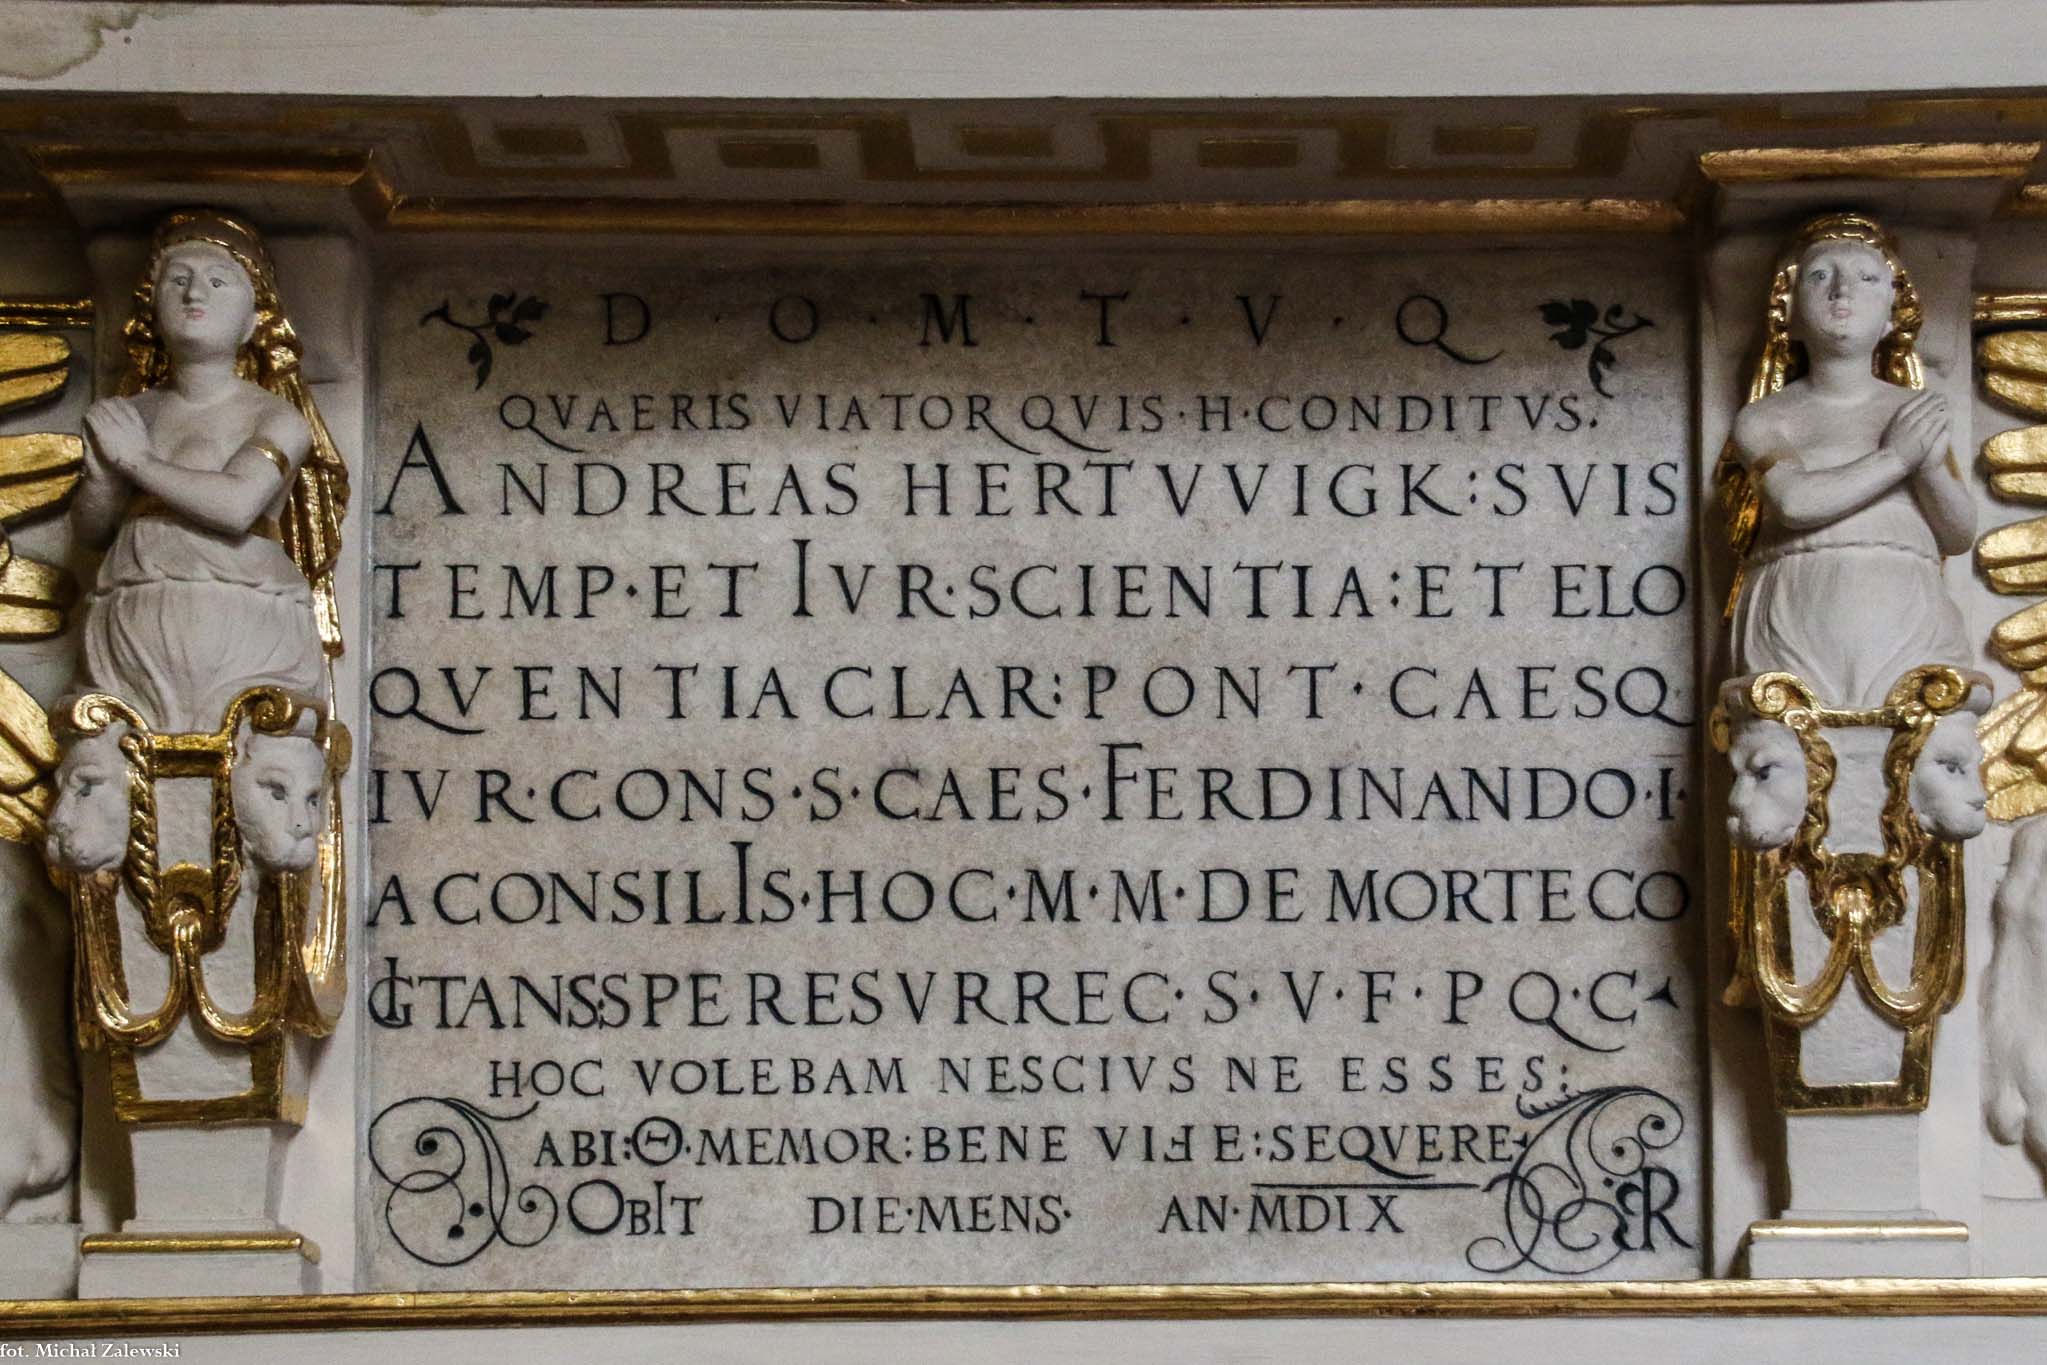 D · O · M · T · V · Q
QVAERIS VIATOR QVIS · H · CONDITVS.
ANDREAS HERTVVIGK : SVIS
TEMP · ET IVR · SCIENTIA : ET ELO
QVENTIA CLAR : PONT · CAESQ
IVR · CONS · S · CAES · FERDINANDO · I ·
A CONSILIS · HOC · M · M · DE MORTE CO
GITANS : SPE RESVRREC · S · V · F · P Q · C
HOC VOLEBAM NESCIVS NE ESSES :
ABI : Θ · MEMOR : BENE VIℲE : SEQVERE
OBIT DIE · MENS · AN · MDIX
fot. Michał Zalewski